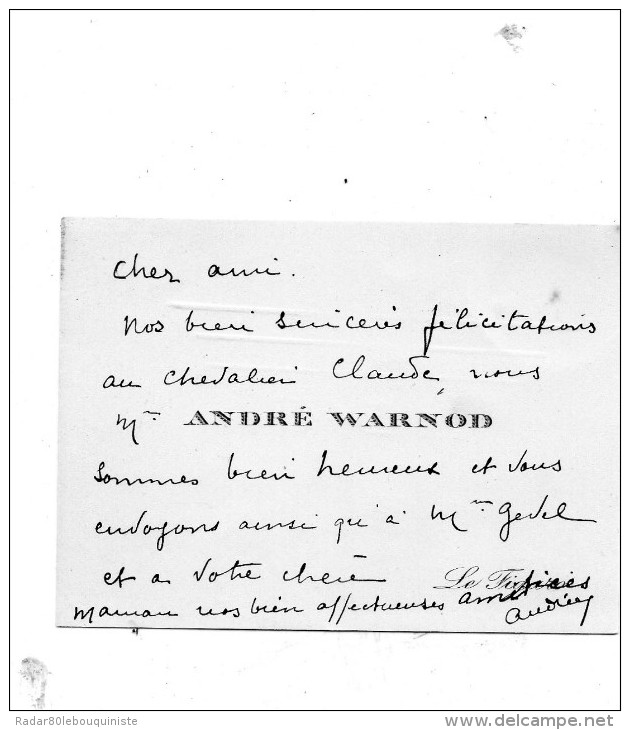 Cher ami.
Nos bien sincères félicitations
au chevalier Claude, nous
Mr ANDRÉ WARNOD
sommes bien heureux et vous
envoyons ainsi qu'à Mme
et à votre chère Le Figaro
maman nos bien affectueuses amitiés
Radar80lebouquiniste
www.delcampe.net